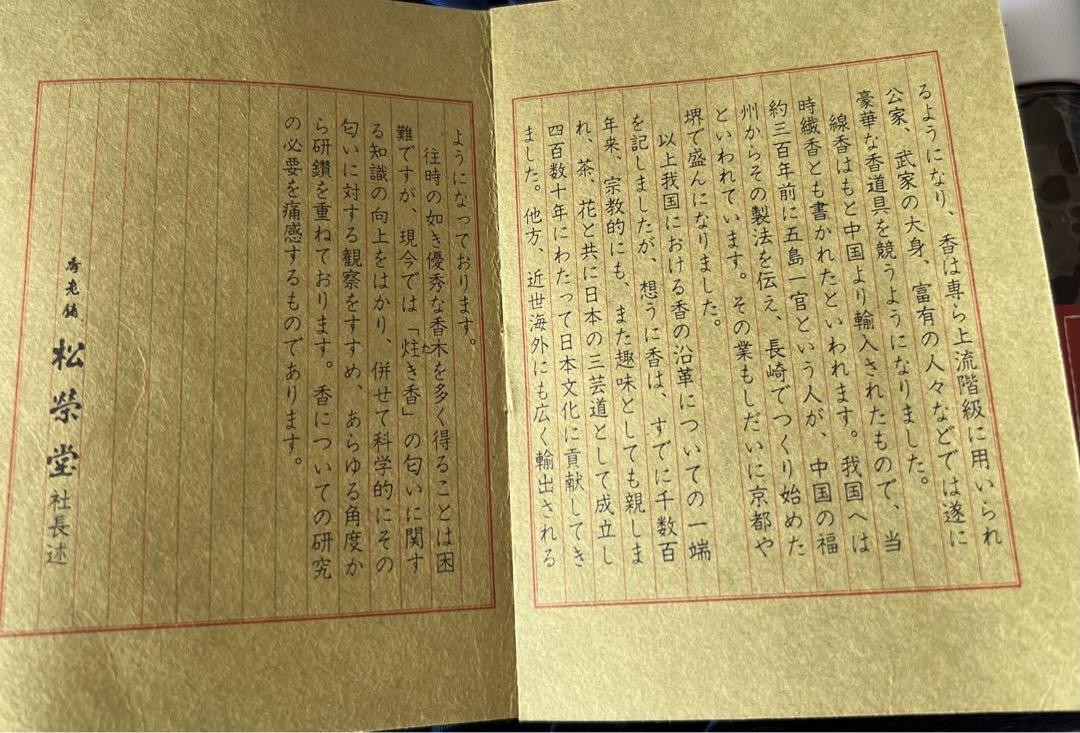 るようになり、香は専ら上流階級に用いられ
公家、武家の大身、富有の人々などでは遂に
豪華な香道具を競うようになりました。
線香はもと中国より輸入されたもので、当
時繊香とも書かれたといわれます。我国へは
約三百年前に五島一官という人が、中国の福
州からその製法を伝え、長崎でつくり始めた
といわれています。その業もしだいに京都や
堺で盛んになりました。
以上我国における香の沿革についての一端
を記しましたが、想うに香は、すでに千数百
年来、宗教的にも、また趣味としても親しま
れ、茶、花と共に日本の三芸道として成立し
四百数十年にわたって日本文化に貢献してき
ました。他方、近世海外にも広く輸出される
ようになっております。
往時の如き優秀な香木を多く得ることは困
難ですが、現今では「炷き香」の匂いに関す
る知識の向上をはかり、併せて科学的にその
匂いに対する観察をすすめ、あらゆる角度か
ら研鑽を重ねております。香についての研究
の必要を痛感するものであります。
香老舗 松榮堂 社長述